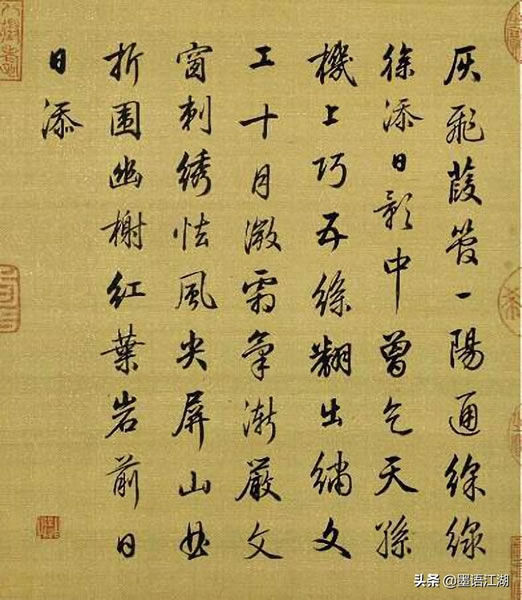 灰飛葭管一陽通綵線
徐添日影中曾乞天孫
機上巧五綵翻出繡文
工十月微霜氣漸嚴文
窗刺綉怯風尖屏山曲
折圍幽榭紅葉岩前日
日添
头条 @墨语江湖